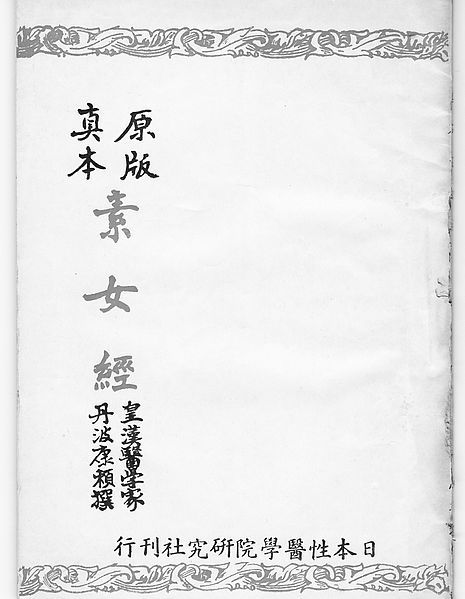 原版
真本
素女經
皇漢醫學家
丹波康賴撰
日本性醫學院研究社刊行